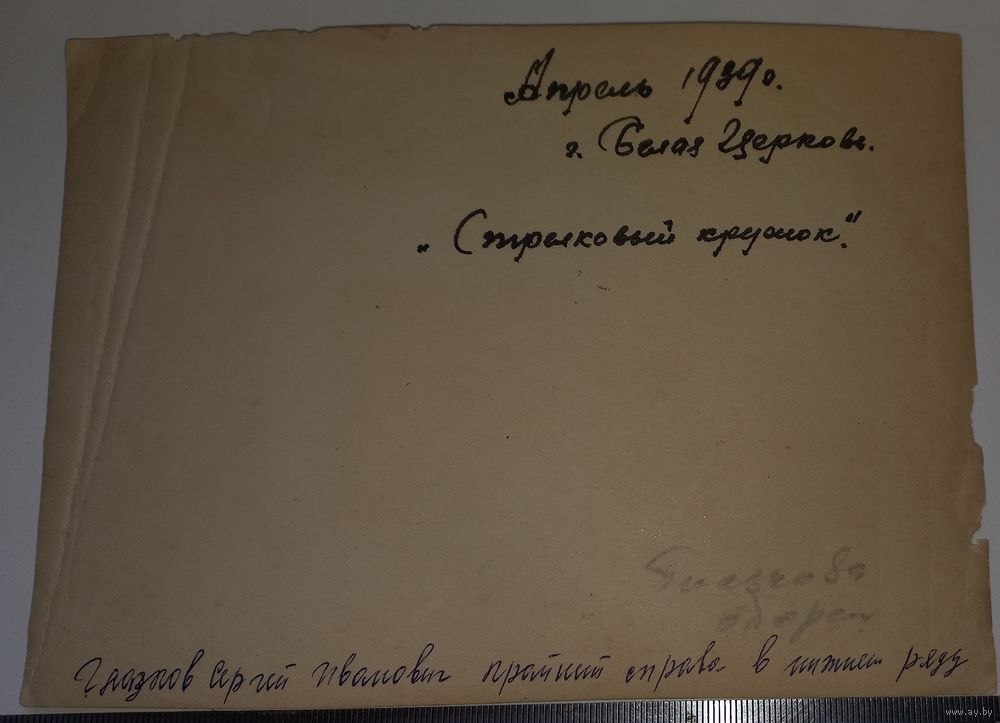 Апрель 1939г.
г. Белая Церковь.
„Стрелковый кружок."
Глазков Сергей Иванович крайний справа в нижнем ряду
www.ay.by